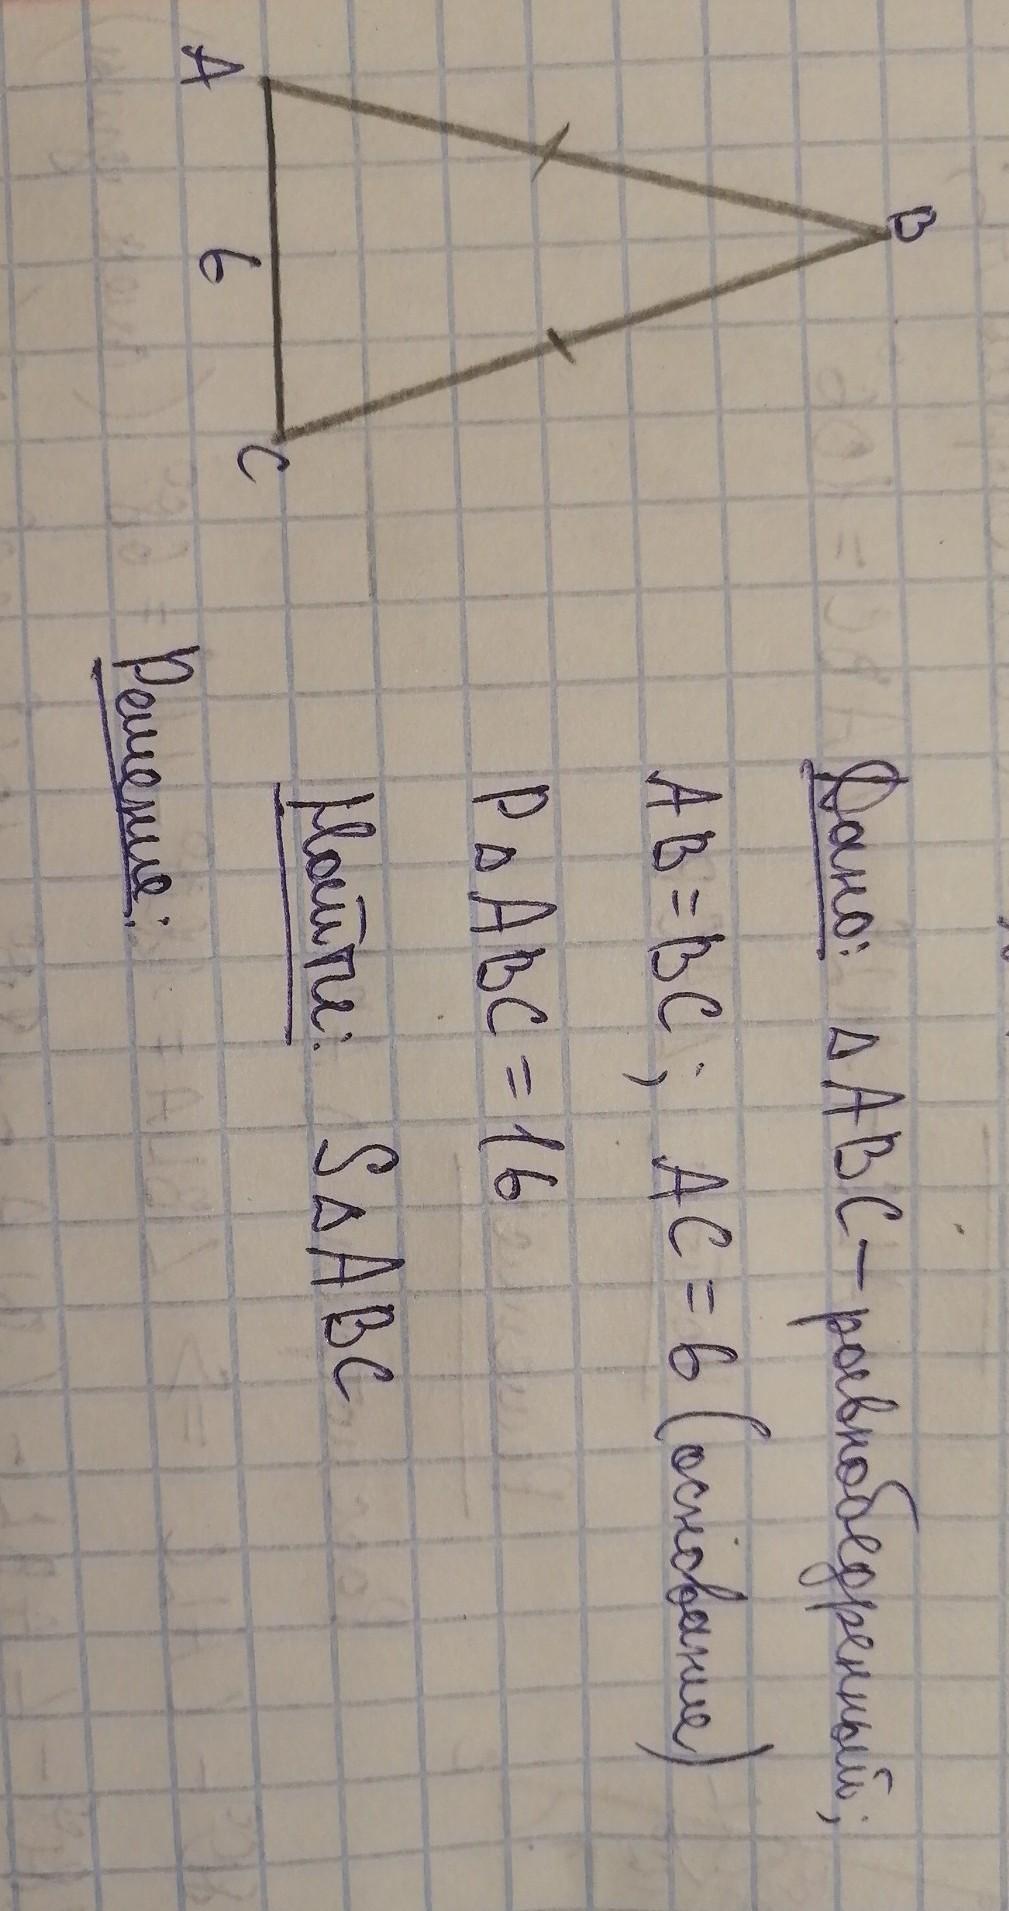 B
A
6
C
Дано: △ABC – равнобедренный;
AB = BC; AC = 6 (основание)
P△ABC = 16
Найти: S△ABC
Решение: